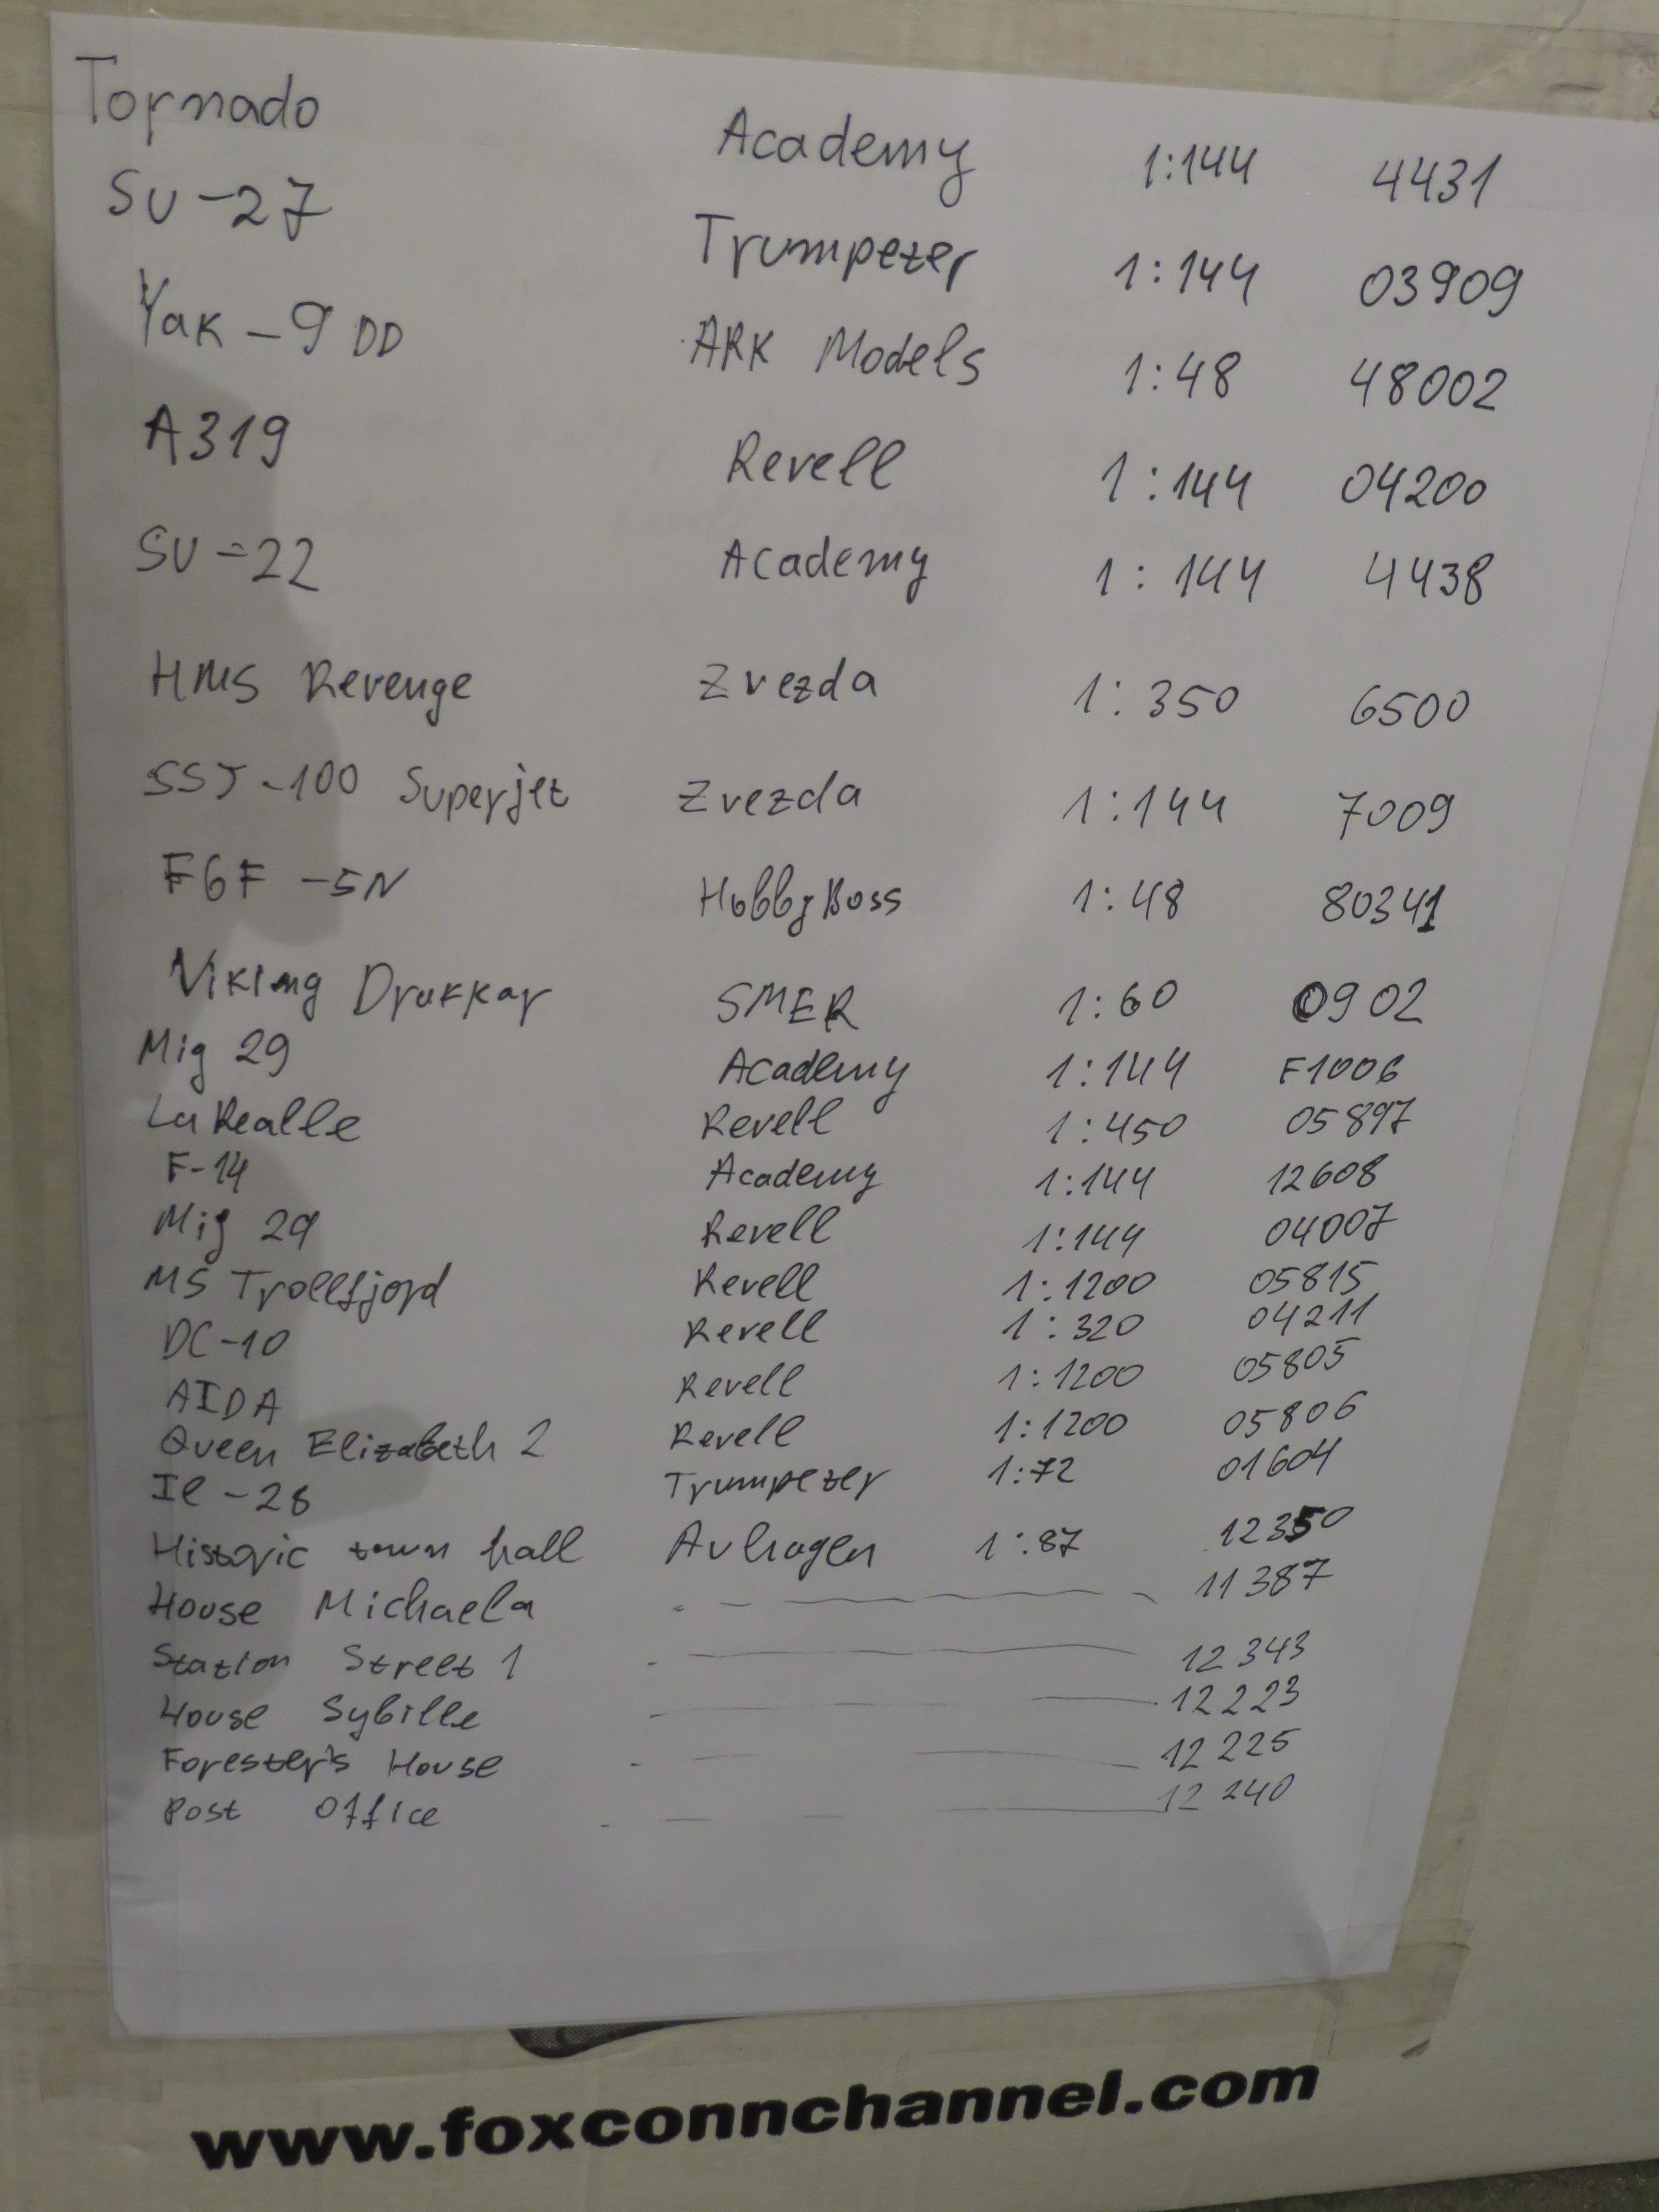 Tornado Academy 1:144 4431
SU-27 Trumpeter 1:144 03909
Yak-9 DD ARK Models 1:48 48002
A319 Revell 1:144 04200
SU-22 Academy 1:144 4438
HMS Revenge Zvezda 1:350 6500
SSJ-100 Superjet Zvezda 1:144 7009
F6F-5N HobbyBoss 1:48 80341
Viking Drakkar SMER 1:60 0902
Mig 29 Academy 1:144 F1006
La Realle Revell 1:450 05897
F-14 Academy 1:144 12608
Mig 29 Revell 1:144 04007
MS Trollfjord Revell 1:1200 05815
DC-10 Revell 1:320 04211
AIDA Revell 1:1200 05805
Queen Elizabeth 2 Revell 1:1200 05806
Il-28 Trumpeter 1:72 01604
Historic town hall Auhagen 1:87 12350
House Michaela 11387
Station Street 1 12343
House Sybille 12223
Forester's House 12225
Post Office 12240
www.foxconnchannel.com